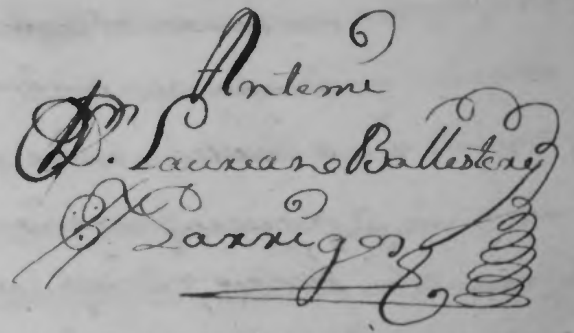 Antemi
D. Laureano Ballester y
Garrigos